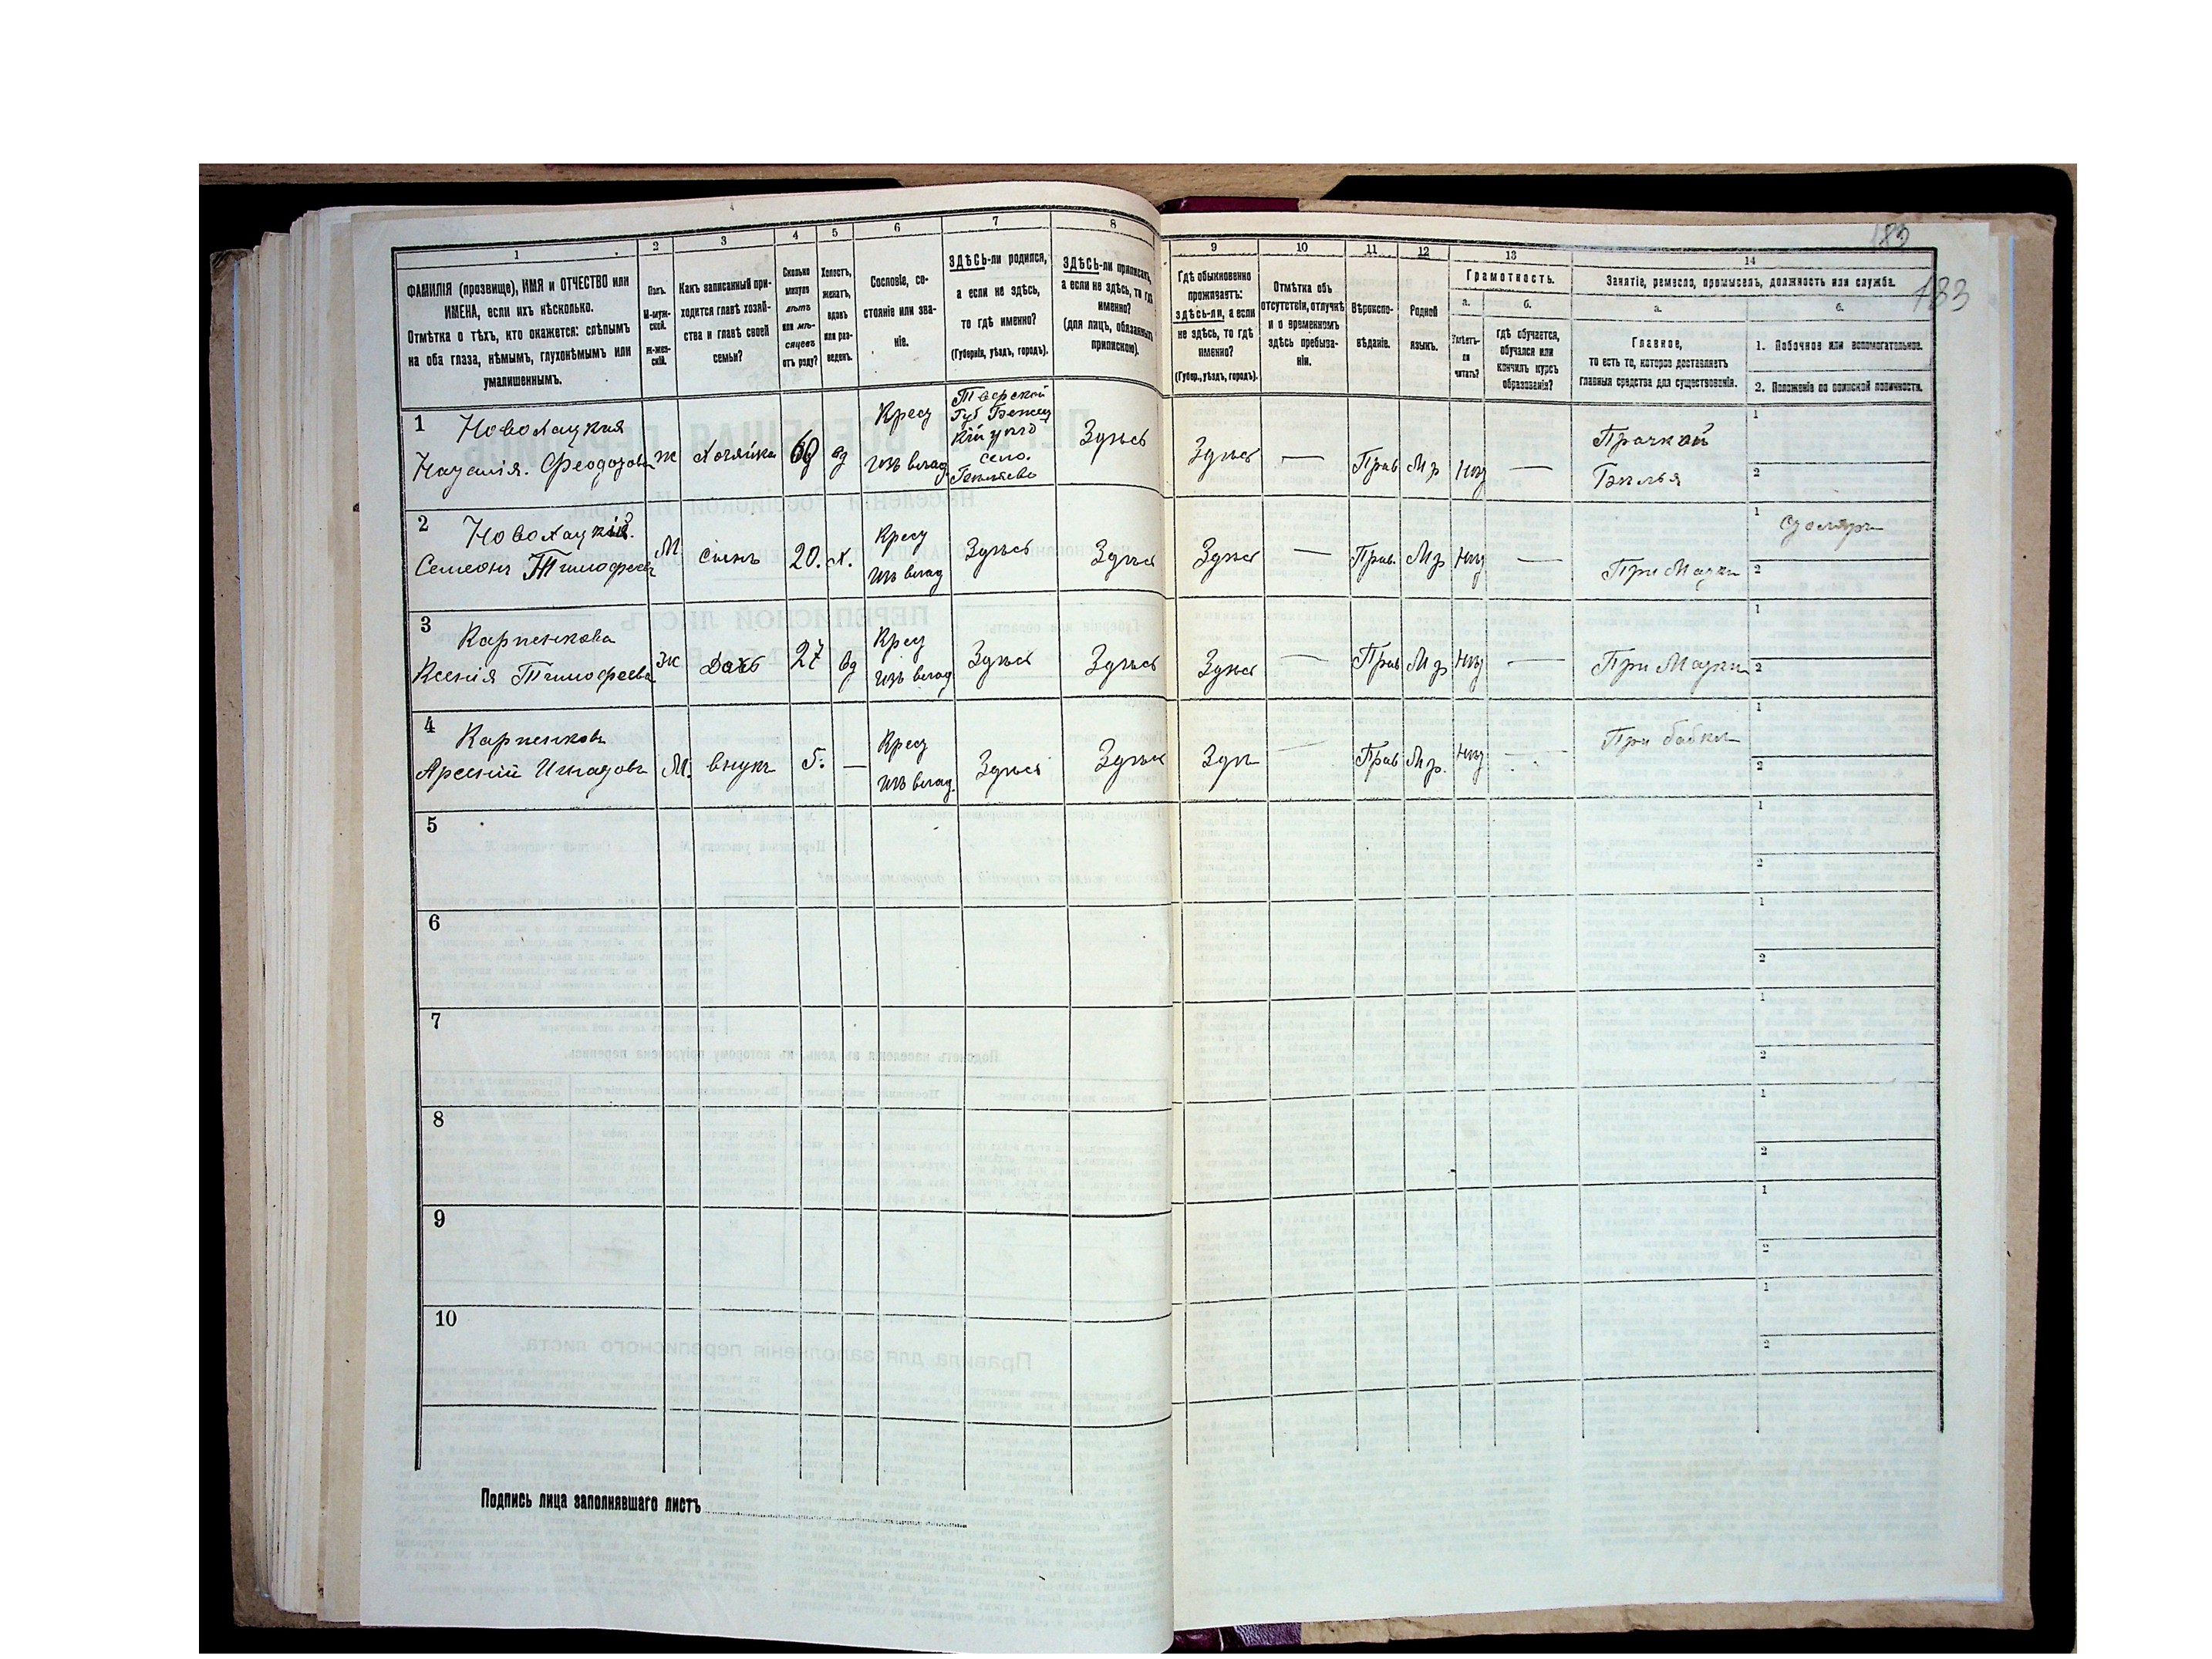 183
183
1 2 3 4 5 6 7 8 9 10 11 12 13 14
ФАМИЛІЯ (прозвище), ИМЯ и ОТЧЕСТВО или
ИМЕНА, если ихъ нѣсколько.
Отмѣтка о тѣхъ, кто окажется: слѣпымъ
на оба глаза, нѣмымъ, глухонѣмымъ или
умалишеннымъ.
Полъ.
М-муж-
ской.
Ж-жен-
скій.
Какъ записанный при-
ходится главѣ хозяй-
ства и главѣ своей
семьи?
Сколько
минуло
лѣтъ
или мѣ-
сяцевъ
отъ роду?
Холостъ,
женатъ,
вдовъ
или раз-
веденъ.
Сословіе, со-
стояніе или зва-
ніе.
ЗДѢСЬ-ли родился,
а если не здѣсь,
то гдѣ именно?
(Губернія, уѣздъ, городъ).
ЗДѢСЬ-ли приписанъ,
а если не здѣсь, то гдѣ
именно?
(для лицъ, обязанныхъ
припискою).
Гдѣ обыкновенно
проживаетъ:
здѣсь-ли, а если
не здѣсь, то гдѣ
именно?
(Губер., уѣздъ, городъ).
Отмѣтка объ
отсутствіи, отлучкѣ
и о временномъ
здѣсь пребыва-
ніи.
Вѣроиспо-
вѣданіе.
Родной
языкъ.
Грамотность.
а.
Умѣетъ-
ли
читать?
б.
гдѣ обучается,
обучался или
кончилъ курсъ
образованія?
Занятіе, ремесло, промыселъ, должность или служба.
а.
Главное,
то есть то, которое доставляетъ
главныя средства для существованія.
б.
1. Побочное или вспомогательное.
2. Положеніе по воинской повинности.
1 Новохацкая
Наталія. Феодорова ж Хозяйка 60 вд
Крест
изъ влад.
Тверской
Губ Бежец
кій уѣзд
село.
Здѣсь Здѣсь — Прав Мр Нѣт —
Прачкой
Бѣлья
1
2
2 Новохацкій.
Семеонъ Тимофеевъ М сынъ 20. х.
Крест
изъ влад
Здѣсь Здѣсь Здѣсь — Прав. Мр Нѣт — При Матки
1 Столяръ
2
3 Карпенкова
Ксенія Тимофеева ж Дочь 27 вд
Крест
изъ влад
Здѣсь Здѣсь Здѣсь — Прав Мр Нѣт — При Матки
1
2
4 Карпенковъ
Арсеній Игнатовъ М. внукъ 5. —
Крест
изъ влад.
Здѣсь Здѣсь Здѣ — Прав Мр. Нѣт — При бабки
1
2
5 1
2
6 1
2
7 1
2
8 1
2
9 1
2
10 1
2
Подпись лица заполнявшаго листъ